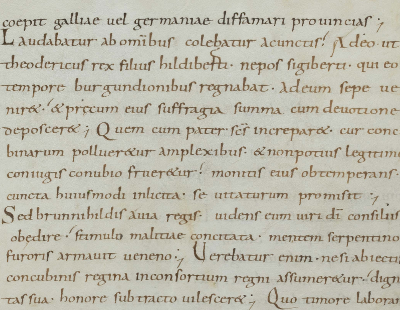 coepit galliae uel germaniae diffamari prouincias ;
Laudabatur ab omĩbus colebatur acunctis. Adeo ut
theodericus rex filius hildiberti. nepos sigiberti. qui eo
tempore burgundionibus regnabat. adeum sepe ue
nir&. & p̃cum eius suffragia summa cum deuotione
deposcer&; Quem cum pater sc̃s increpar&. cur conc
binarum pollueretur amplexibus. & nonpotius legitime
coniugis conubio frueretur. monitis eius obtemperans.
cuncta huiusmodi inlicita. se uitaturum promisit ;
Sed brunnihildis auia regis. uidens eum uiri dĩ consiliis
obedire. stimulo malitiae concitata. mentem serpentino
furoris armauit ueneno; Uerebatur enim. ne si abiectis
concubinis regina inconsortium regni assumeretur. dign
tas sua. honore subtracto uilescer&; Quo timore laboran